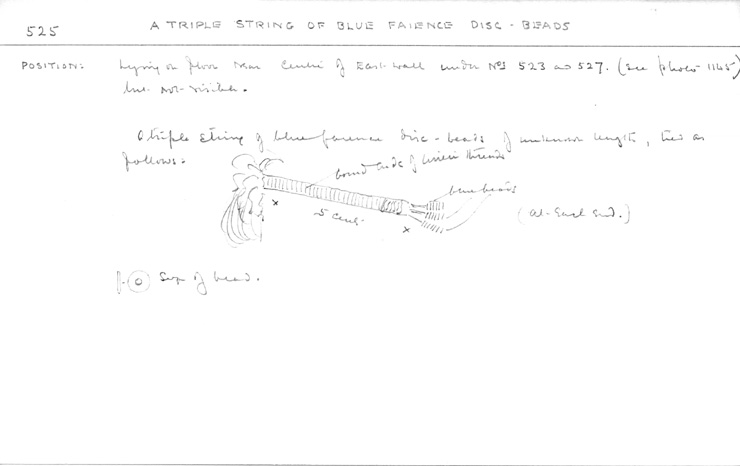 525
A TRIPLE STRING OF BLUE FAIENCE DISC-BEADS
POSITION: Lying on floor near Centre of East-wall under Nos 523 and 527. (see photo 1145)
but not visible.
A triple string of blue faience disc-beads of unknown length, tied as
follows:
bound ends of linen threads
blue beads
x
5 cents.
x
(at each end.)
Size of bead.